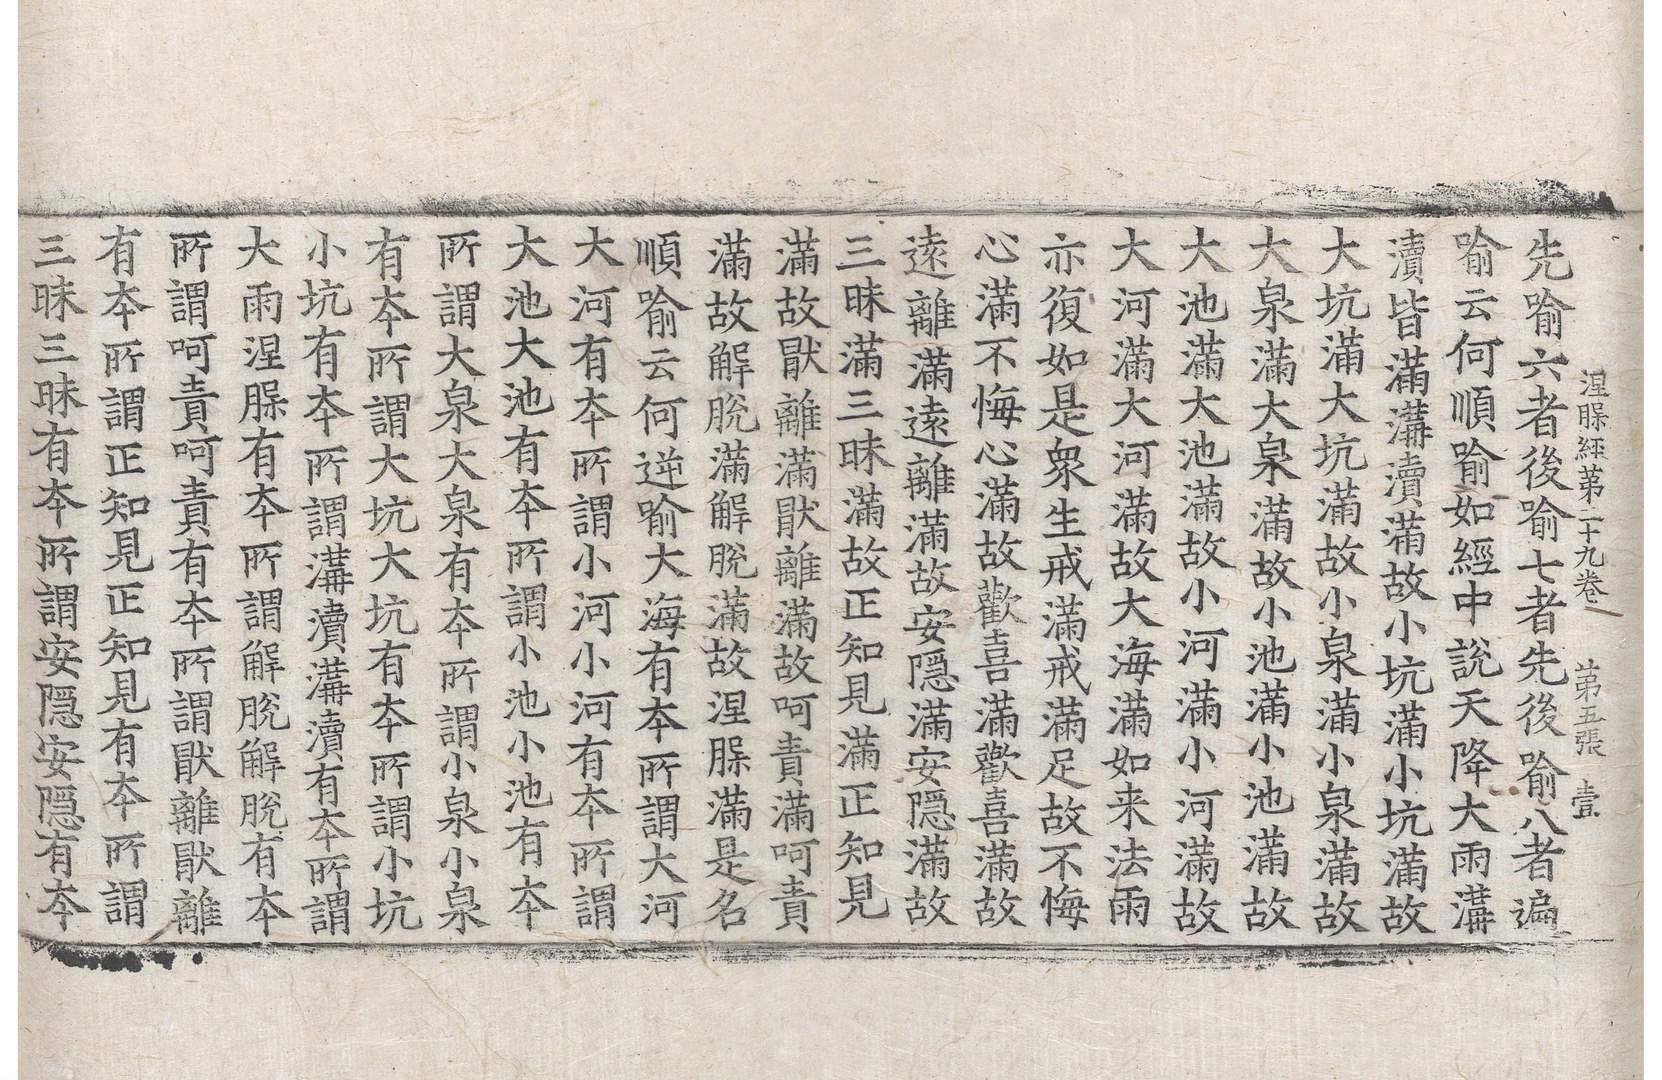 涅槃經第二十九卷 第五張 壹
先喻六者後喻七者先後喻八者遍
喻云何順喻如經中說天降大雨溝
瀆皆滿溝瀆滿故小坑滿小坑滿故
大坑滿大坑滿故小泉滿小泉滿故
大泉滿大泉滿故小池滿小池滿故
大池滿大池滿故小河滿小河滿故
大河滿大河滿故大海滿如来法雨
亦復如是衆生戒滿戒滿足故不悔
心滿不悔心滿故歡喜滿歡喜滿故
遠離滿遠離滿故安隱滿安隱滿故
三昧滿三昧滿故正知見滿正知見
滿故猒離滿猒離滿故呵責滿呵責
滿故解脫滿解脫滿故涅槃滿是名
順喻云何逆喻大海有夲所謂大河
大河有夲所謂小河小河有夲所謂
大池大池有夲所謂小池小池有夲
所謂大泉大泉有夲所謂小泉小泉
有夲所謂大坑大坑有夲所謂小坑
小坑有夲所謂溝瀆溝瀆有夲所謂
大雨涅槃有夲所謂解脫解脫有夲
所謂呵責呵責有夲所謂猒離猒離
有夲所謂正知見正知見有夲所謂
三昧三昧有夲所謂安隱安隱有夲